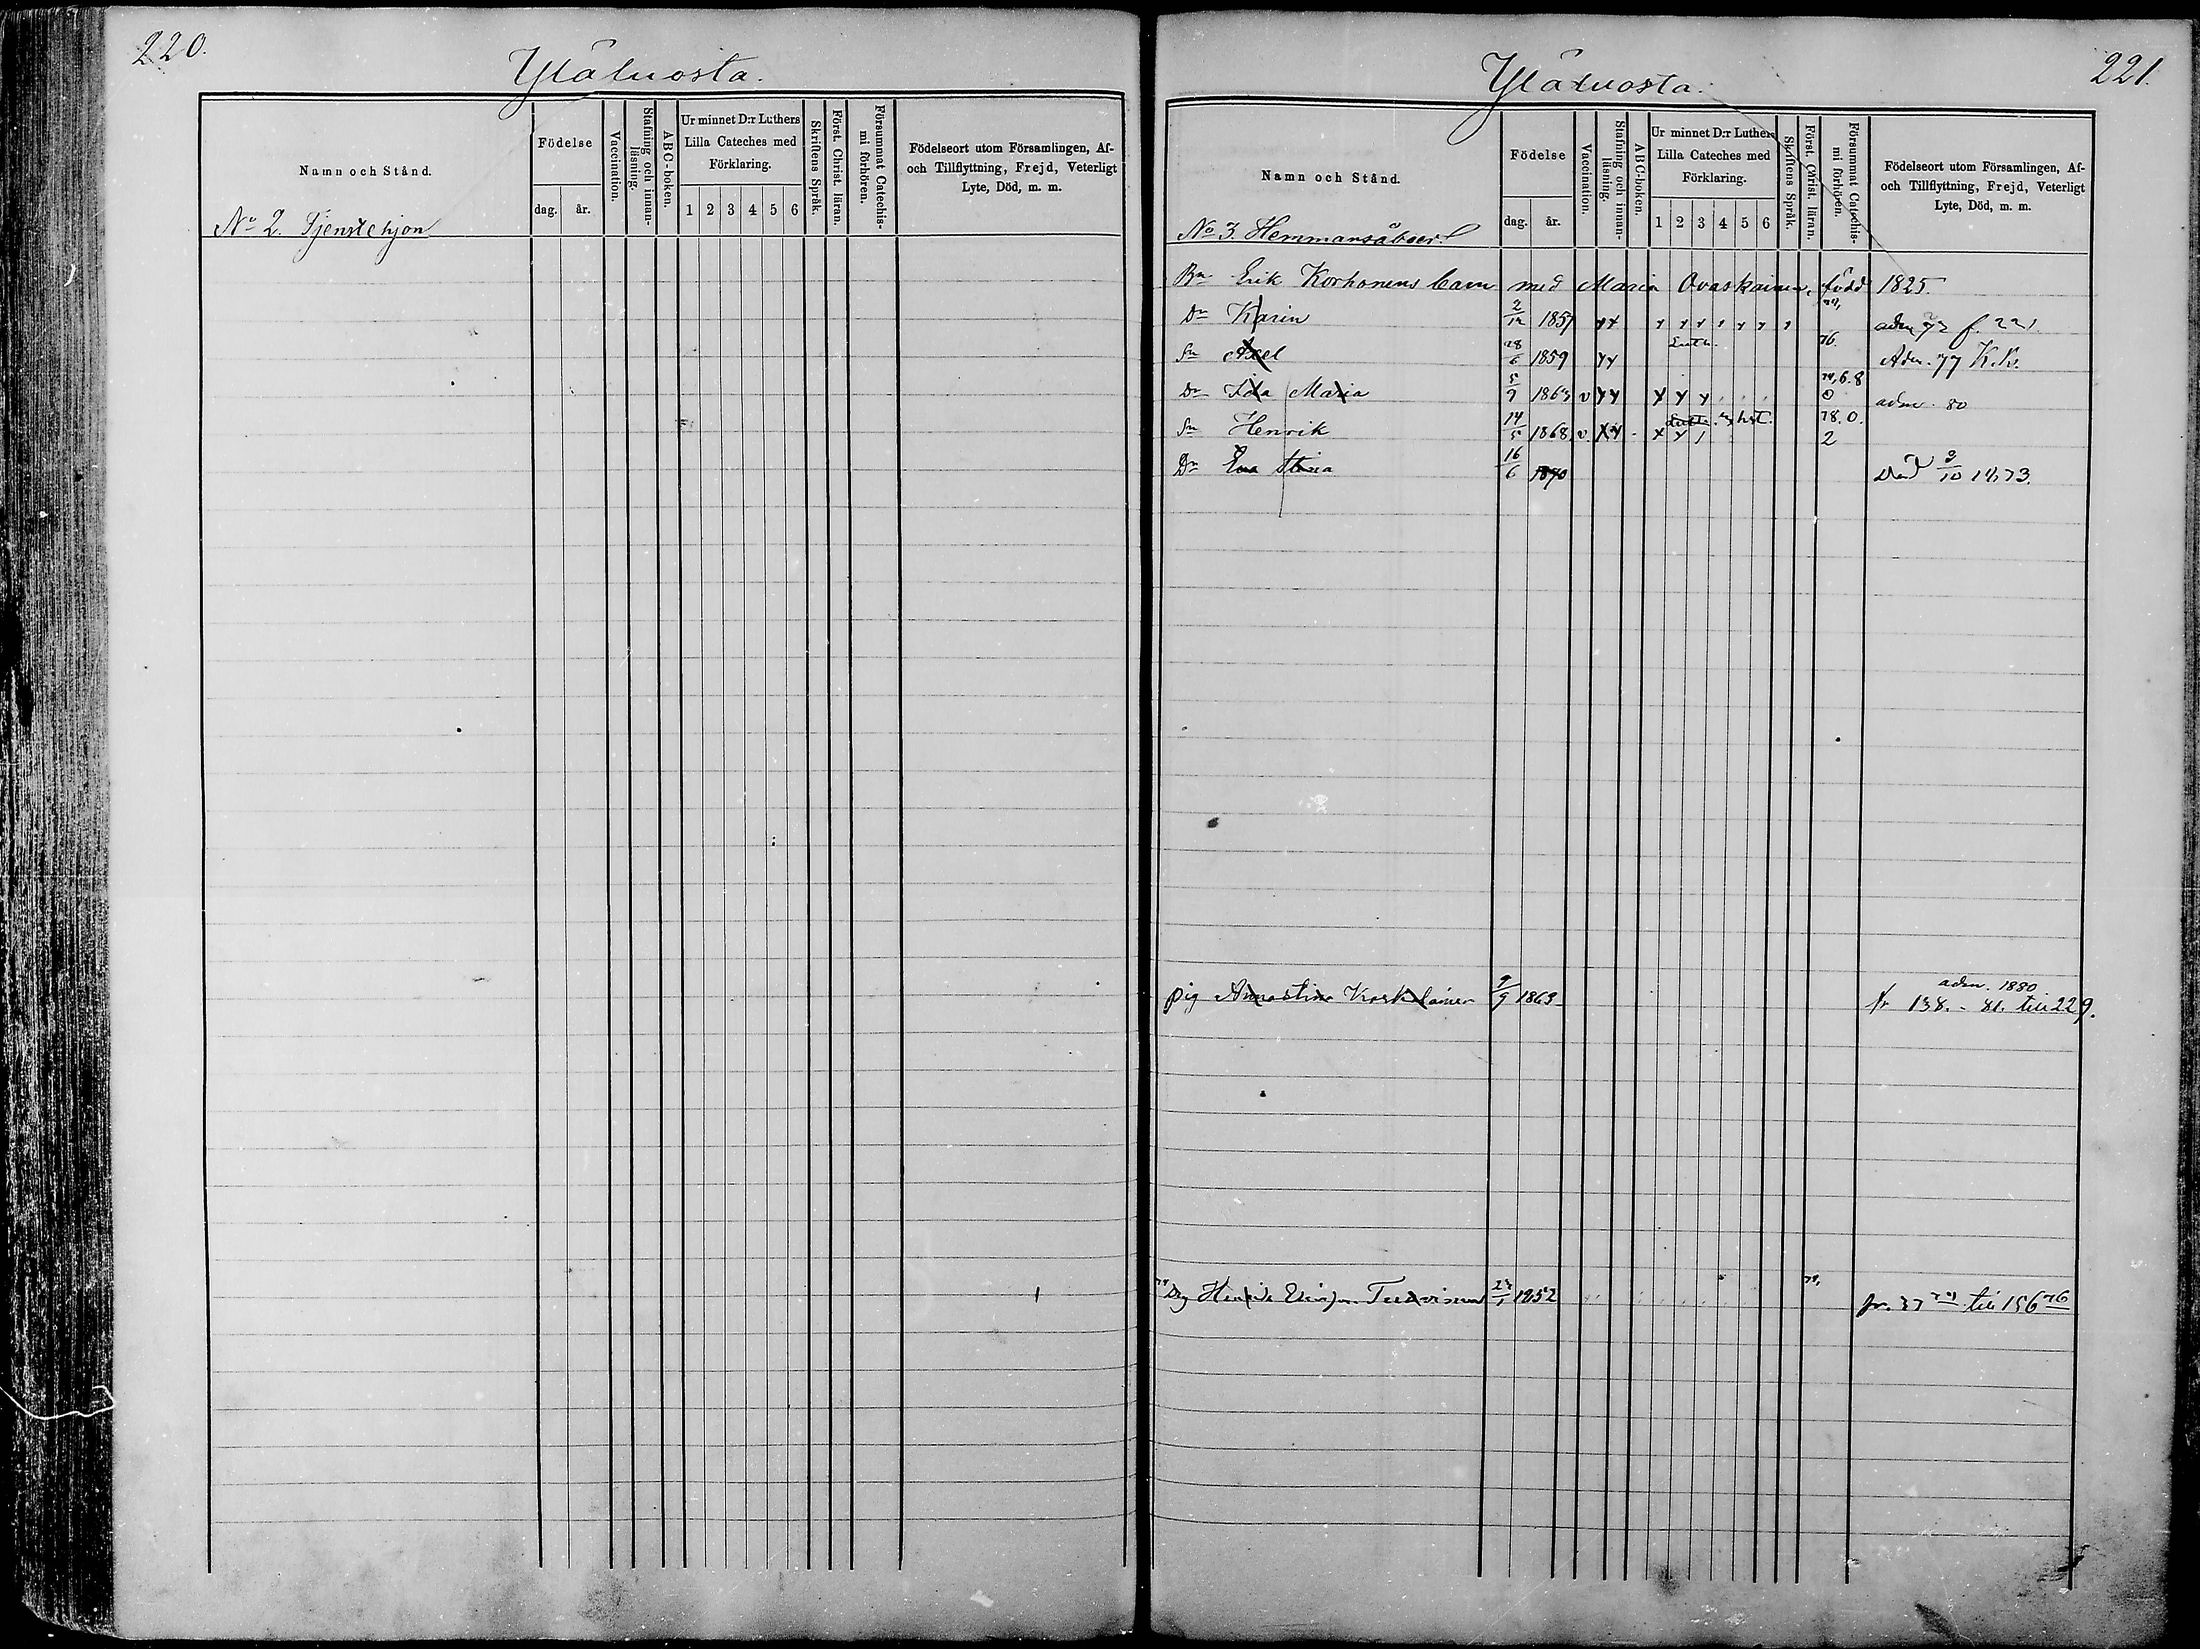 220.
Ylätuosta.
Namn och Stånd.
Födelse
dag.
år.
Vaccination.
Stafning och innan-
läsning.
ABC-boken.
Ur minnet D:r Luthers
Lilla Cateches med
Förklaring.
1 2 3 4 5 6
Skriftens Språk.
Först. Christ. läran.
Försummat Catechis-
mi förhören.
Födelseort utom Församlingen, Af-
och Tillflyttning, Frejd, Veterligt
Lyte, Död, m. m.
No 2. Tjenstehjon
221.
Ylätuosta.
Namn och Stånd.
Födelse
dag.
år.
Vaccination.
Stafning och innan-
läsning.
ABC-boken.
Ur minnet D:r Luthers
Lilla Cateches med
Förklaring.
1 2 3 4 5 6
Skriftens Språk.
Först. Christ. läran.
Försummat Catechis-
mi förhören.
Födelseort utom Församlingen, Af-
och Tillflyttning, Frejd, Veterligt
Lyte, Död, m. m.
No 3. Hemmansåboer.
Bn Erik Korhonens barn med Maria Ovaskainen, född 1825.
Dr Karin 2/12 1857 f. 221
Sn Axel 28/6 1859 76. Adm. 77 K.B.
Dr Ida Maria 5/9 1863 v adm. 80
Sn Henrik 14/5 1868 v 78.0. 2
Dr Eva Stina 16/6 1870 Död 3/10 1873.
pig Annastina 9/9 1863 adm. 1880
fr 138. - 81. till 229.
Drg 1852 fr. 37 till 156 76